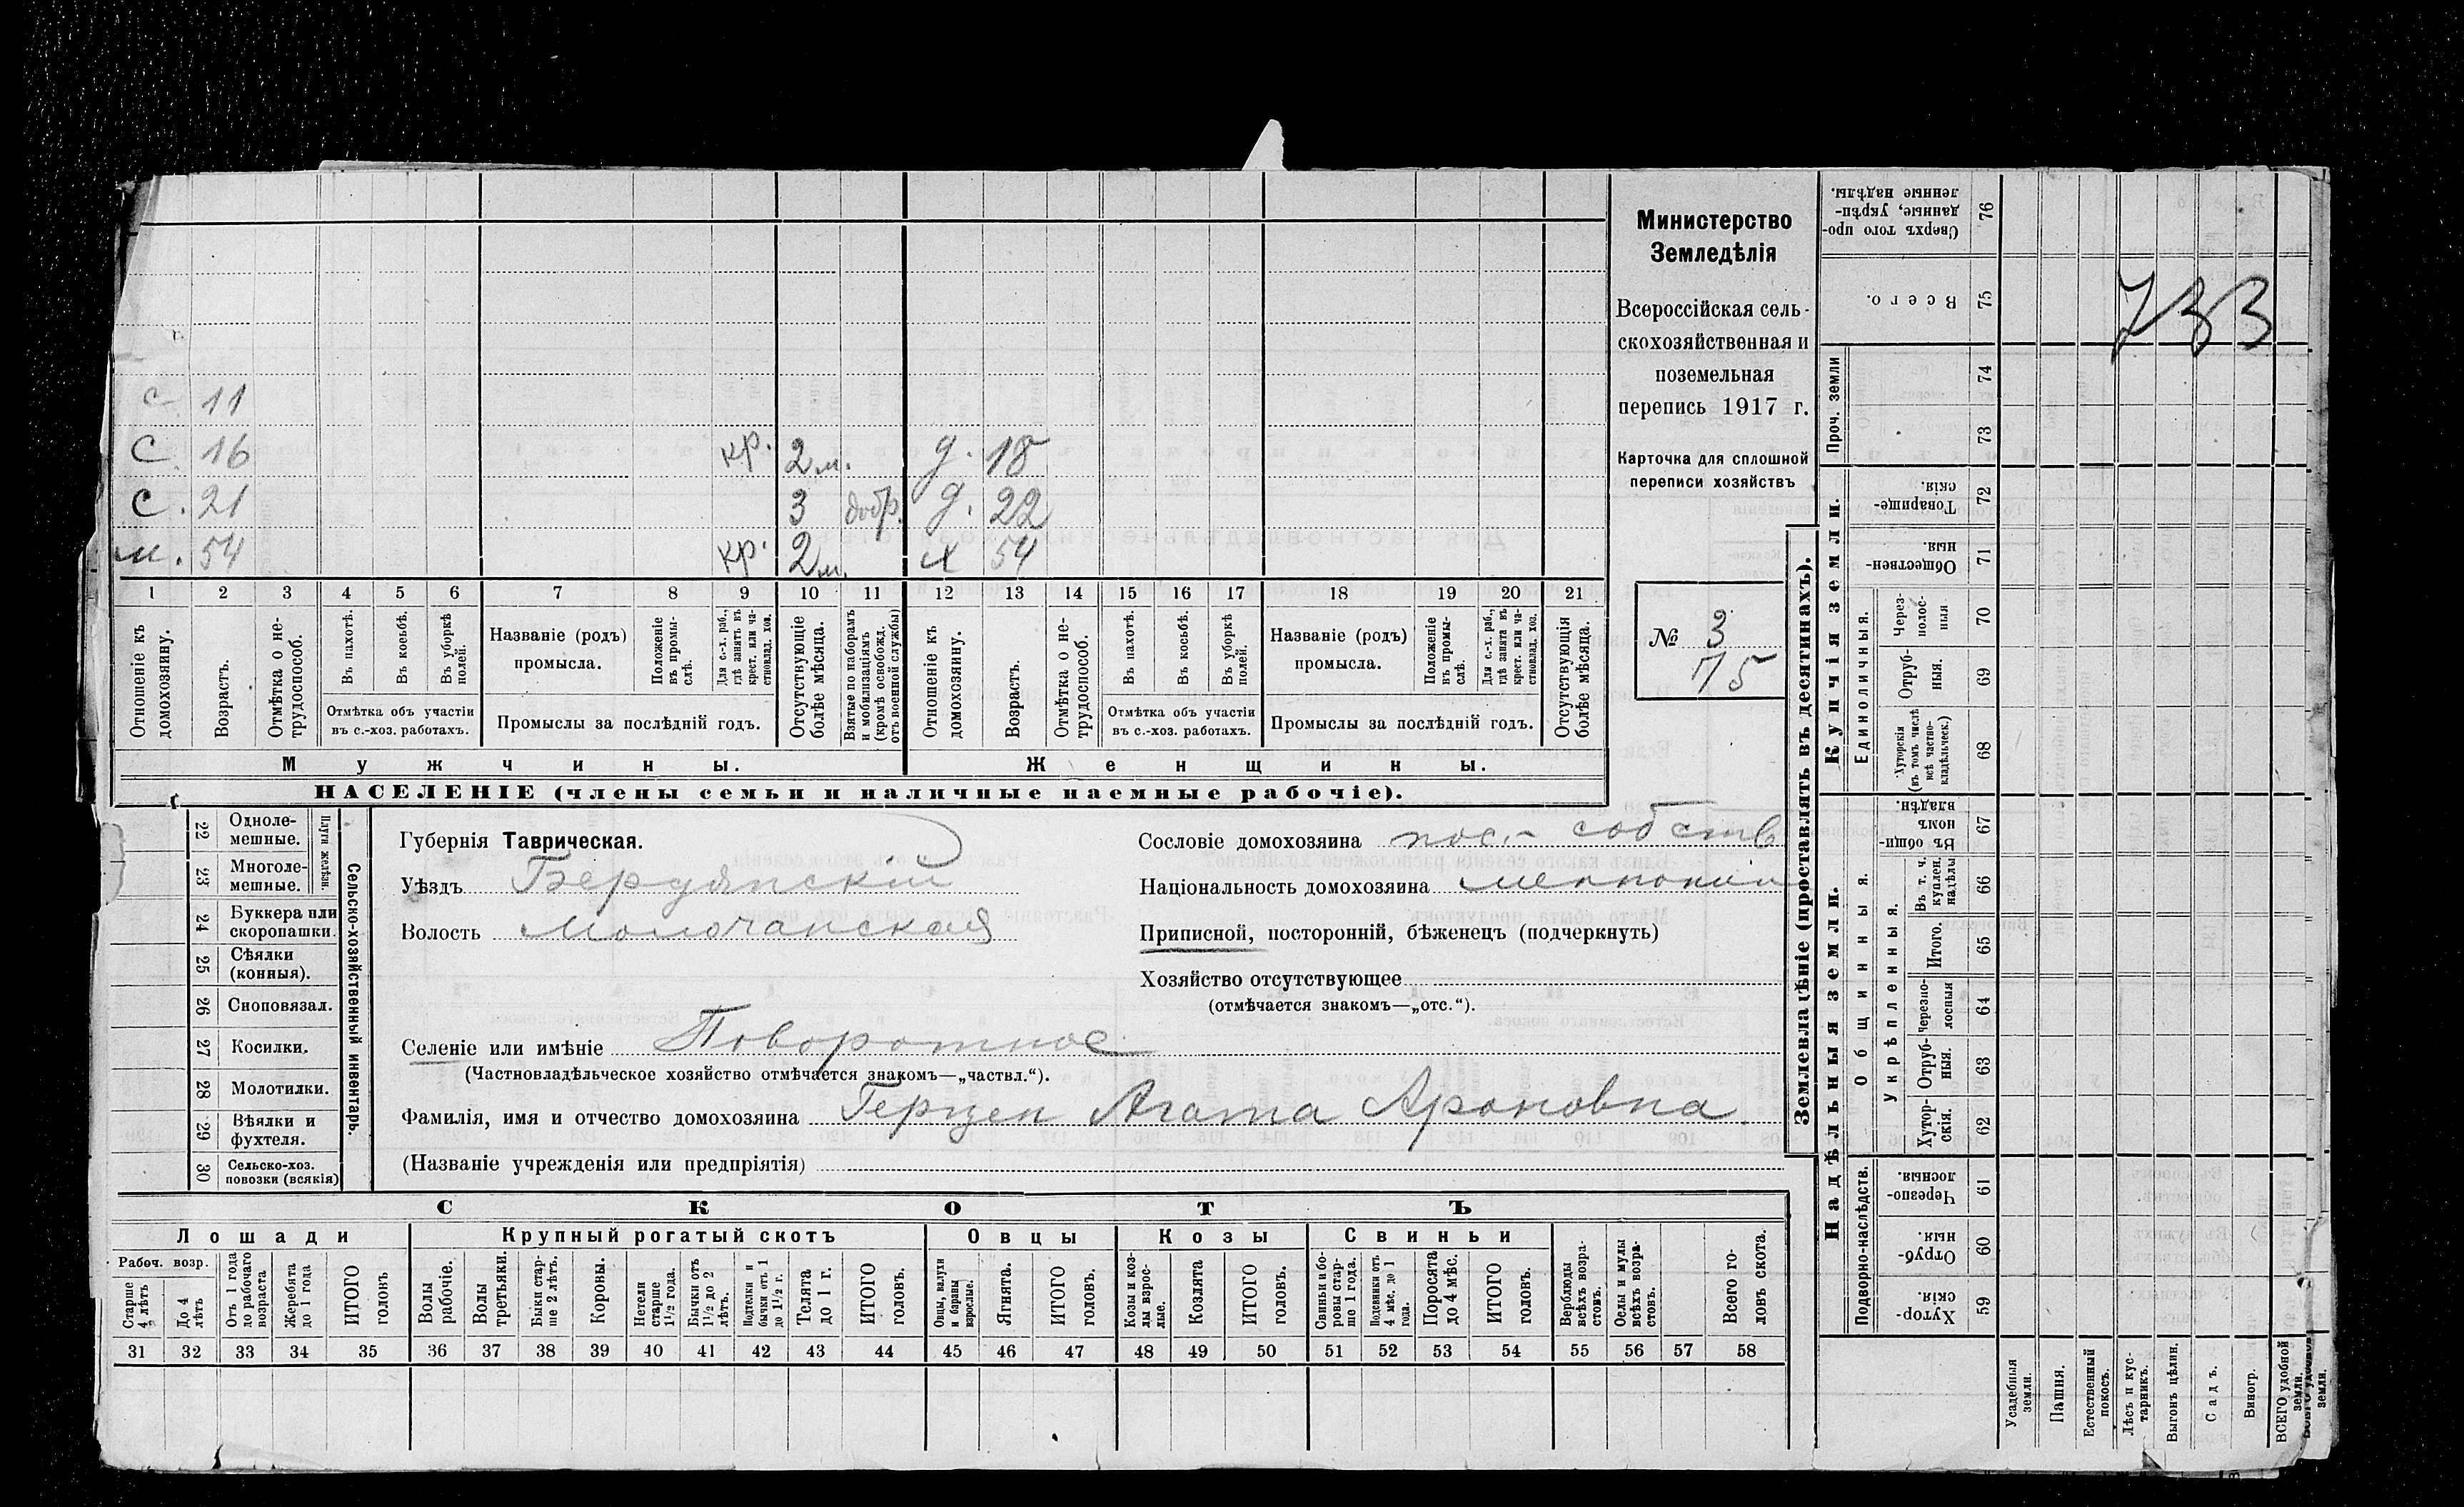 с 11
С 16 кр. 2 м. д. 18
С. 21 3 добр. д. 22
м. 54 кр. 2 м. х 54
1 2 3 4 5 6 7 8 9 10 11 12 13 14 15 16 17 18 19 20 21
Отношеніе къ домохозяину.
Возрастъ.
Отмѣтка о не-трудоспособ.
Въ пахотѣ.
Въ косьбѣ.
Въ уборкѣ полей.
Отмѣтка объ участіи
въ с.-хоз. работахъ.
Названіе (родъ)
промысла.
Положеніе въ промы-слѣ.
Для с.-х. раб., гдѣ занятъ въ крест. или ча-стновлад. хоз.
Промыслы за послѣдній годъ.
Отсутствующіе болѣе мѣсяца.
Взятые по наборамъ и мобилизаціямъ (кромѣ освобожд. отъ военной службы)
Отношеніе къ домохозяину.
Возрастъ.
Отмѣтка о не-трудоспособ.
Въ пахотѣ.
Въ косьбѣ.
Въ уборкѣ полей.
Отмѣтка объ участіи
въ с.-хоз. работахъ.
Названіе (родъ)
промысла.
Положеніе въ промы-слѣ.
Для с.-х. раб., гдѣ занята въ крест. или ча-стновлад. хоз.
Промыслы за послѣдній годъ.
Отсутствующія болѣе мѣсяца.
Мужчины. Женщины.
НАСЕЛЕНІЕ (члены семьи и наличные наемные рабочіе).
Министерство
Земледѣлія
Всероссійская сель-
скохозяйственная и
поземельная
перепись 1917 г.
Карточка для сплошной
переписи хозяйствъ
№ 3
75
22 Одноле-мешные.
23 Многоле-мешные.
Плуги желѣзн.
24 Буккера или скоропашки.
25 Сѣялки (конныя).
26 Сноповязал.
27 Косилки.
28 Молотилки.
29 Вѣялки и фухтеля.
30 Сельско-хоз. повозки (всякія)
Сельско-хозяйственный инвентарь.
Губернія Таврическая.
Уѣздъ Бердянскій
Волость Молочанская
Селеніе или имѣніе Поворотное
(Частновладѣльческое хозяйство отмѣчается знакомъ—„частвл.“).
Фамилія, имя и отчество домохозяина Герцен Агата Ароновна
(Названіе учрежденія или предпріятія)
Сословіе домохозяина пос.- собств
Національность домохозяина
Приписной, посторонній, бѣженецъ (подчеркнуть)
Хозяйство отсутствующее
(отмѣчается знакомъ—„отс.“).
СКОТЪ
Лошади Крупный рогатый скотъ Овцы Козы Свиньи
Рабоч. возр.
Старше 4 лѣтъ
До 4 лѣтъ
Отъ 1 года до рабочаго возраста
Жеребята до 1 года
ИТОГО головъ
Волы рабочіе.
Волы третьяки.
Быки стар-ше 2 лѣтъ.
Коровы.
Нетели старше 1½ года.
Бычки отъ 1½ до 2 лѣтъ.
Подтелки и бычки отъ 1 до 1½ г.
Телята до 1 г.
ИТОГО головъ.
Овцы, валухи и бараны взрослые.
Ягнята.
ИТОГО головъ.
Козы и коз-лы взрос-лые.
Козлята
ИТОГО головъ.
Свиньи и бо-ровы стар-ше 1 года.
Подсвинки отъ 4 мѣс. до 1 года.
Поросята до 4 мѣс.
ИТОГО головъ.
Верблюды всѣхъ возра-стовъ.
Ослы и мулы всѣхъ возра-стовъ.
Всего го-ловъ скота.
31 32 33 34 35 36 37 38 39 40 41 42 43 44 45 46 47 48 49 50 51 52 53 54 55 56 57 58
Землевладѣніе (проставлять въ десятинахъ).
Надѣльныя земли. Купчія земли. Проч. земли
Сверхъ того про-данные, укрѣп-ленные надѣлы. 76
Всего. 75
733
74
73
Товарище-скія. 72
Обществен-ныя. 71
Единоличныя.
Через-полос-ныя 70
Отруб-ныя. 69
Хуторскія (въ томъ числѣ всѣ частно-владѣльческ.) 68
Общинныя.
Въ общин-номъ владѣн. 67
Укрѣпленныя.
Въ т. ч. куплен. надѣлы 66
Итого. 65
Черезпо-лосныя 64
Отруб-ныя. 63
Хутор-скія. 62
Подворно-наслѣдств.
Черезпо-лосныя. 61
Отруб-ныя. 60
Хутор-скія. 59
Усадебныя земли.
Пашня.
Естественный покосъ.
Лѣсъ и кус-тарникъ.
Выгонъ цѣлин.
Садъ.
Виногр.
ВСЕГО удобной земли.